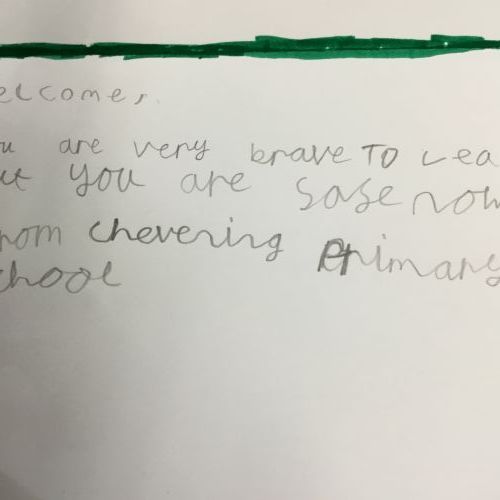 elcome,
ou are very brave to Lea
ut you are sase now
rom chevering primary
chool